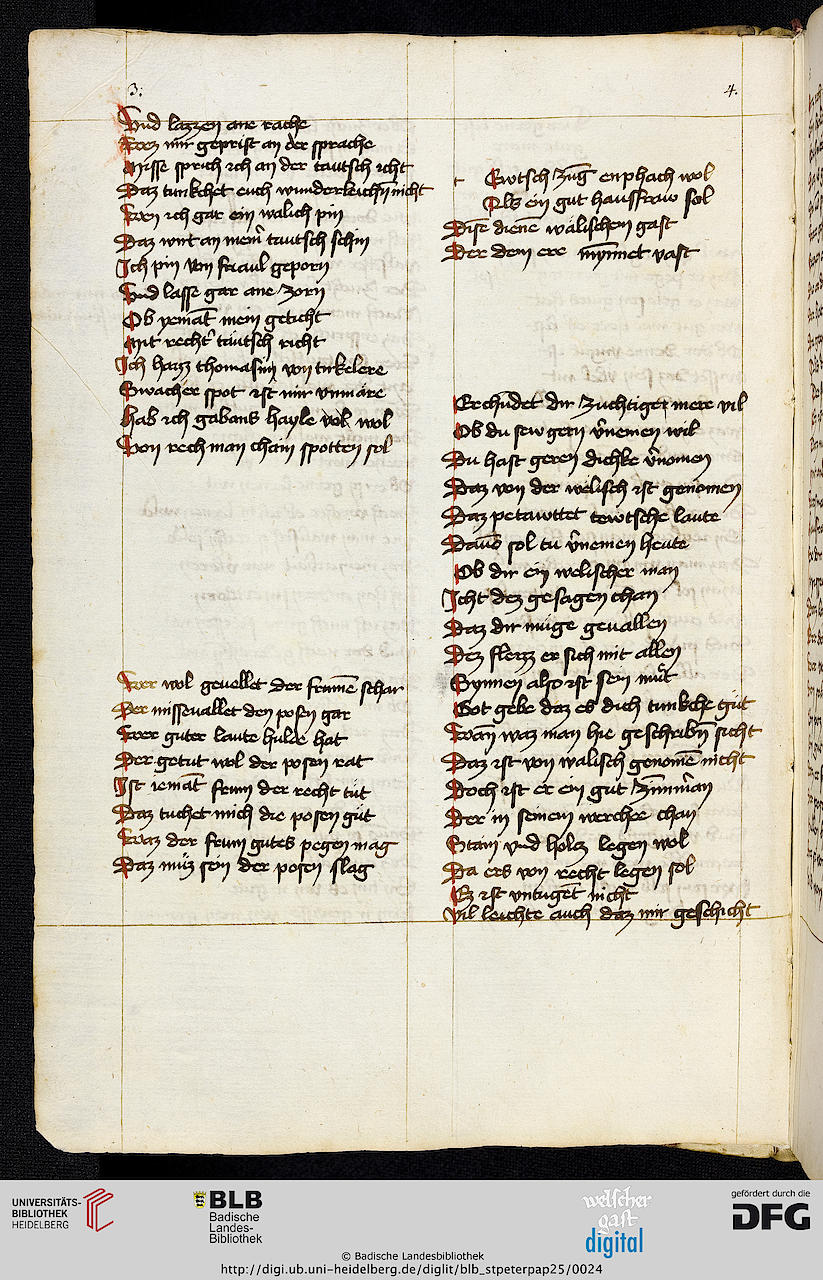 3:
Vnd lazzen ane rache
Waz mir geprist an der sprache
Nisse sprich ich an der tautsch icht
Daz tunkchet euch wunderleichn nicht
Wan ich gar ein walich pin
Daz wirt an mein tautsch schin
Ich pin von friaul geporn
Vnd lasse gar ane zorn
Ob yemāt mein geticht
Mit recht täutsch richt
Ich haizz thomasin von tirkelere
Swacher spot ist mir vnmäre
Hab ich gabans hayle vol wol
Von rech man chain spotten sol
Wer wol gevellet der frumē schar
Der missevallet den posen gar
Wer guter laute hulde hat
Der getut wol der posen rat
Ist iemāt frum der recht tüt
Daz tuchet mich die posen güt
Waz der frum gutes pegen mag
Daz müz sein der posen slag
4.
Ewtsch zūg enphach wol
Als ein gut hausfraw sol
Disē dienē wälischen gast
Der dein ere mynnet vast
Er chūdet dir zuchtiger mere vil
Ob du sew gern v̄nemen wil
Du hast geren dichke v̄nomen
Daz von der welisch ist genomen
Daz petawttet tewtsche laute
Dauō sol tu v̄nemen heute
Ob dir ein welischer man
Icht dez gesagen chan
Daz dir müge gevallen
Dez fleizz er sich mit allen
Synnen also ist sein müt
Got gebe daz es dich tunkche güt
Wan waz man hie geschribn̄ sicht
Daz ist von walisch genomē nicht
Doch ist er ein gut zim̄man
Der in seinem werchee chan
Stain vnd holcz legen wol
Da ers von recht legen sol
Ez ist vntugēt nicht
Vil leichte auch daz mir geschicht
UNIVERSITÄTS-
BIBLIOTHEK
HEIDELBERG
BLB
Badische
Landes-
Bibliothek
welscher
gast
digital
gefördert durch die
DFG
© Badische Landesbibliothek
http://digi.ub.uni-heidelberg.de/diglit/blb_stpeterpap25/0024